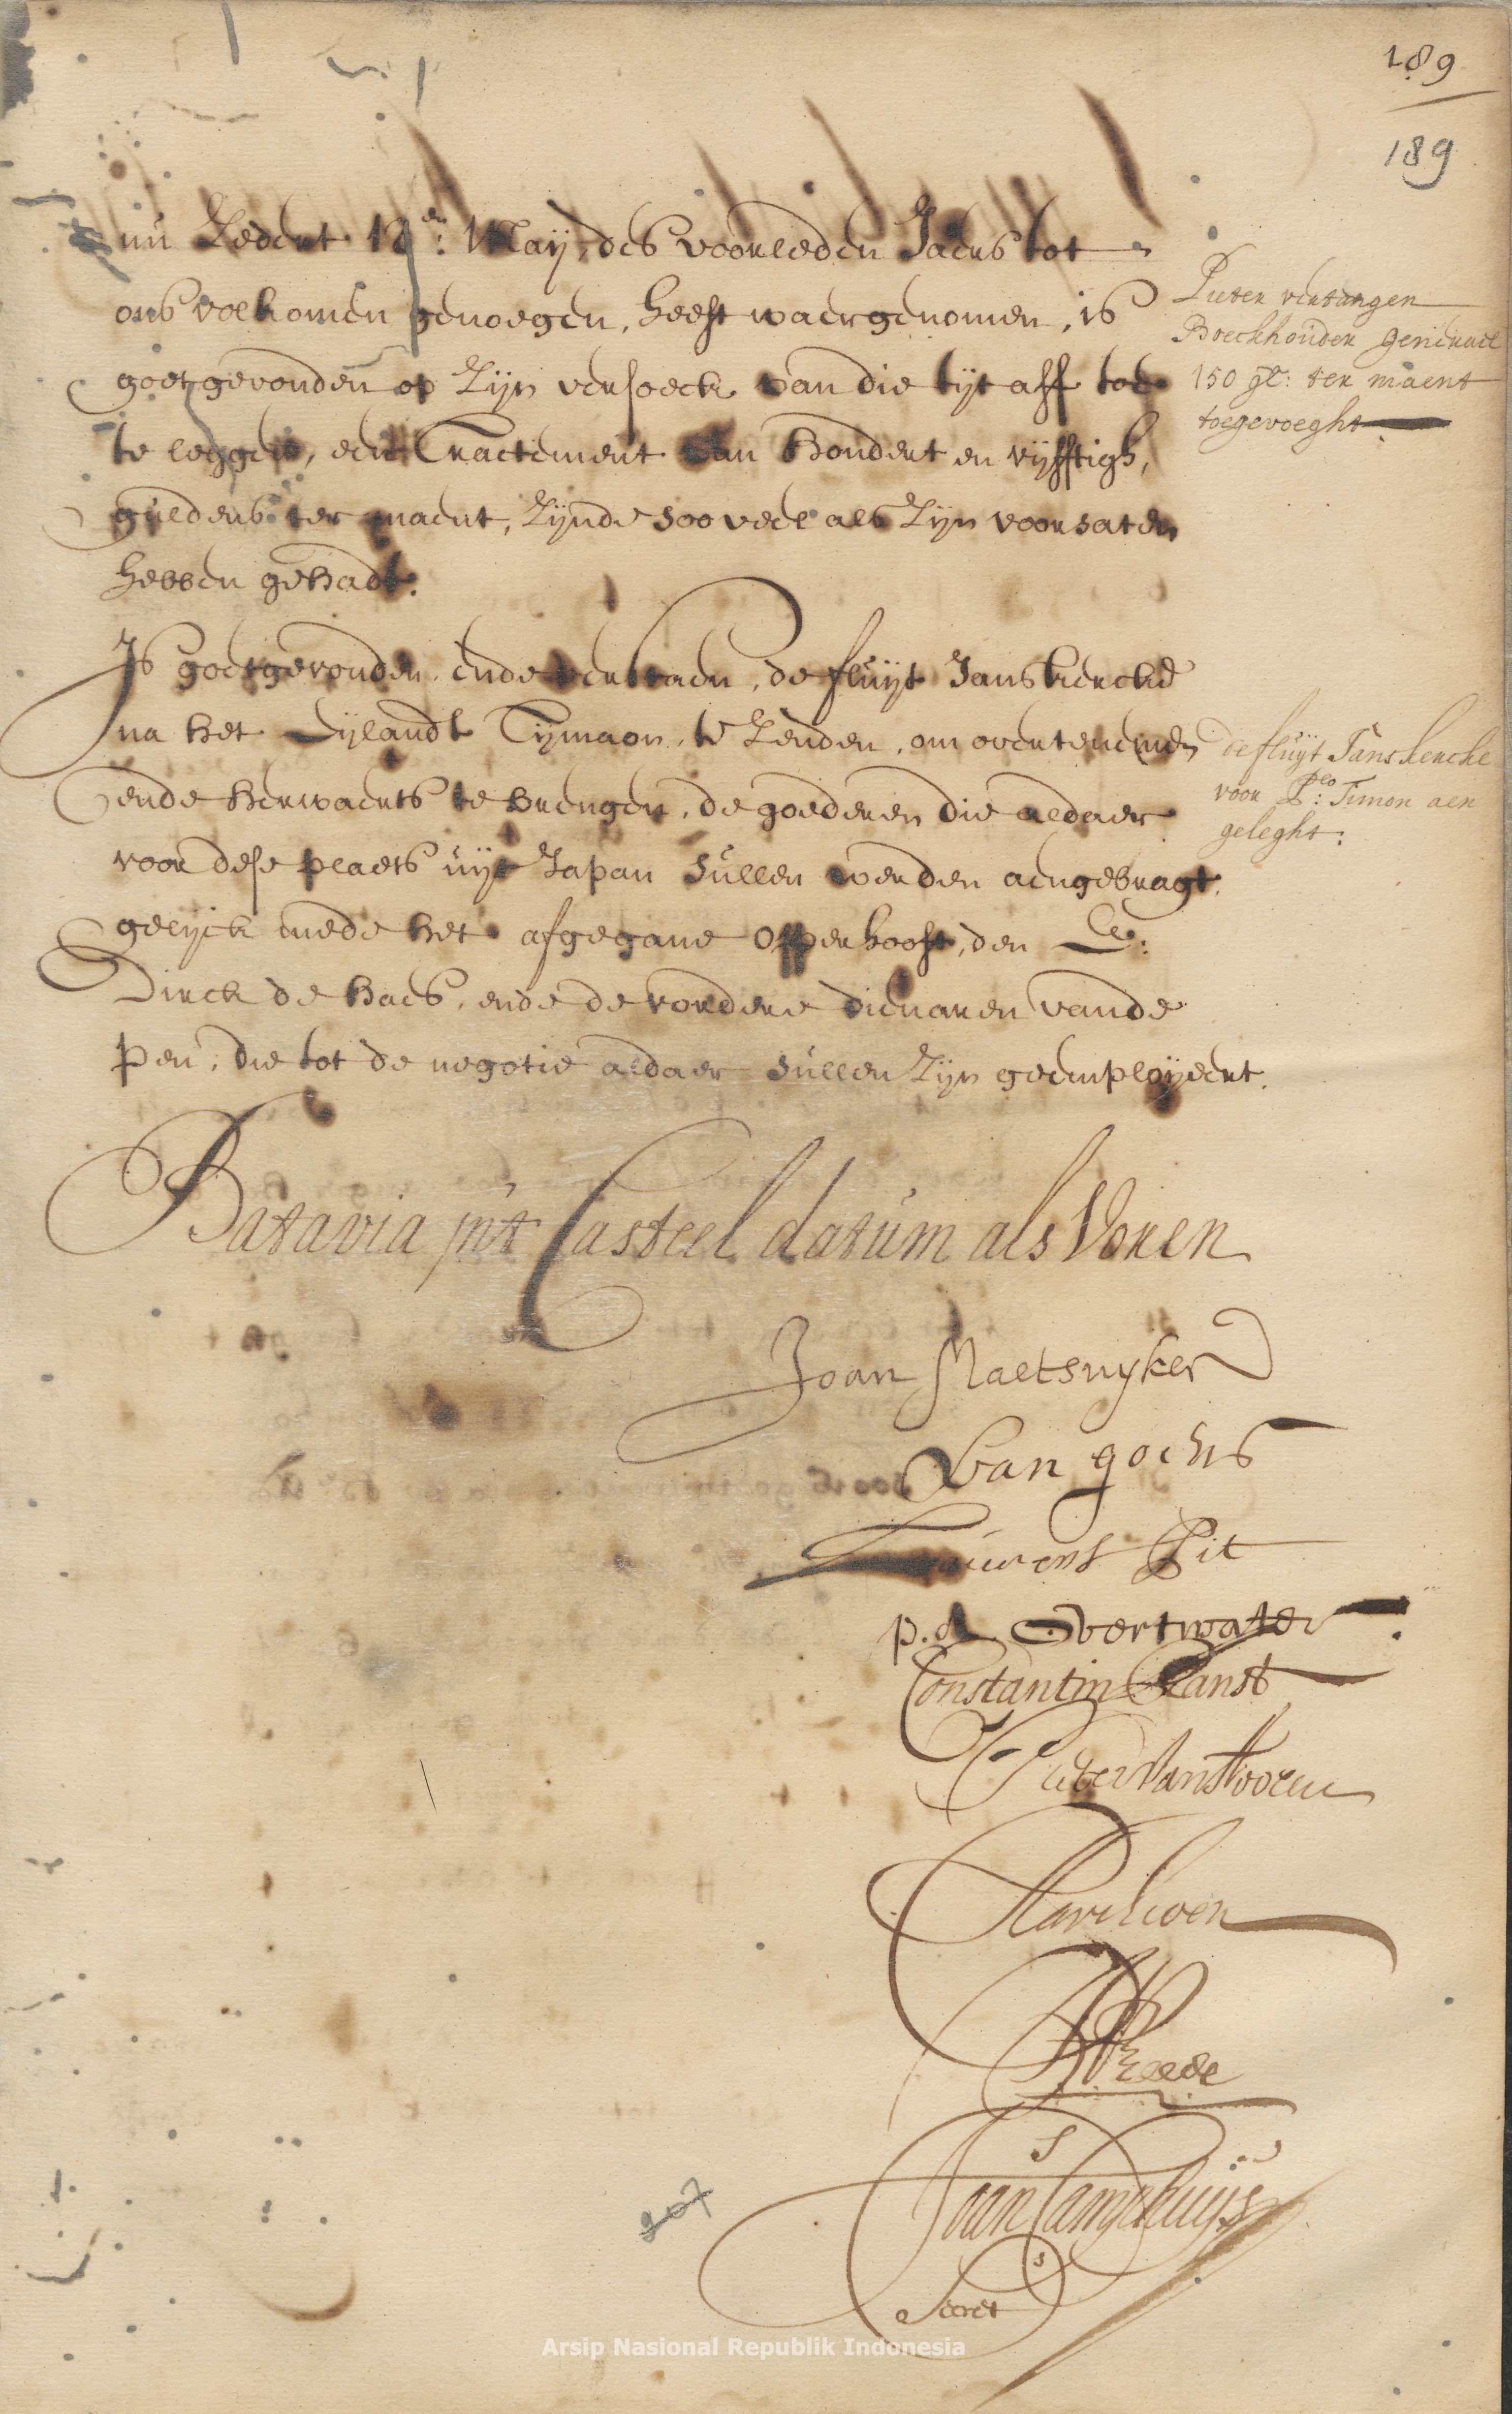 189
189
nu Zedert 12.en Maij des voorleden Jaers tot
ons volkomen genoegen, heeft waergenomen, is
goetgevonden op Zijn versoeck van die tijt aff toe
te leggen, een Tractement van Hondert en vijfftigh,
guldens ter maent, Zijnde soo veel als Zijn voorsaten
hebben gehadt.
Pieter vertangen
Boeckhouder generael
150 gl: ter maent
toegevoeght
Is goetgevonden ende verstaen, de fluijt Janskercke
na het Eijlandt Tijmaon, te Zenden, om overtenemen
ende herwaerts te brengen, de goederen die aldaer
voor dese plaets uijt Japan sullen werden aengebragt.
gelijck mede het afgegane opperhooft, den E:
Dirck de Haes, ende de vordere dienaren vande
Pen, die tot de negotie aldaer sullen Zijn geemploijeert.
de fluijt Janskercke
voor Plo: Timon aen
geleght:
Batavia int Casteel datum als Voren
Joan Maetsuyker
Van goens
Laurens Pit
p.A Overtwater
Constantin Ranst
Pieter Van Hooren
Saveliven
Reede
Joan Camphuijs
Secret
207
Arsip Nasional Republik Indonesia